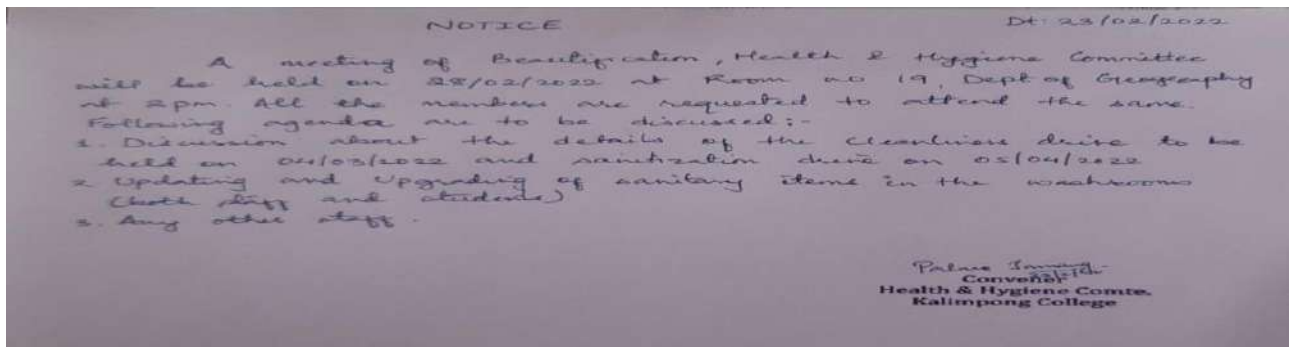 NOTICE Dt: 23/02/2022
A meeting of Beautification, Health & Hygiene Committee
will be held on 28/02/2022 at Room no 19, Dept of Geography
at 2pm. All the members are requested to attend the same.
Following agenda are to be discussed:-
1. Discussion about the details of the Cleanliness drive to be
held on 04/03/2022 and sanitization drive on 05/04/2022
2. Updating and Upgrading of sanitary items in the washrooms
(both staff and students)
3. Any other staff.
Convener
Health & Hygiene Comte.
Kalimpong College